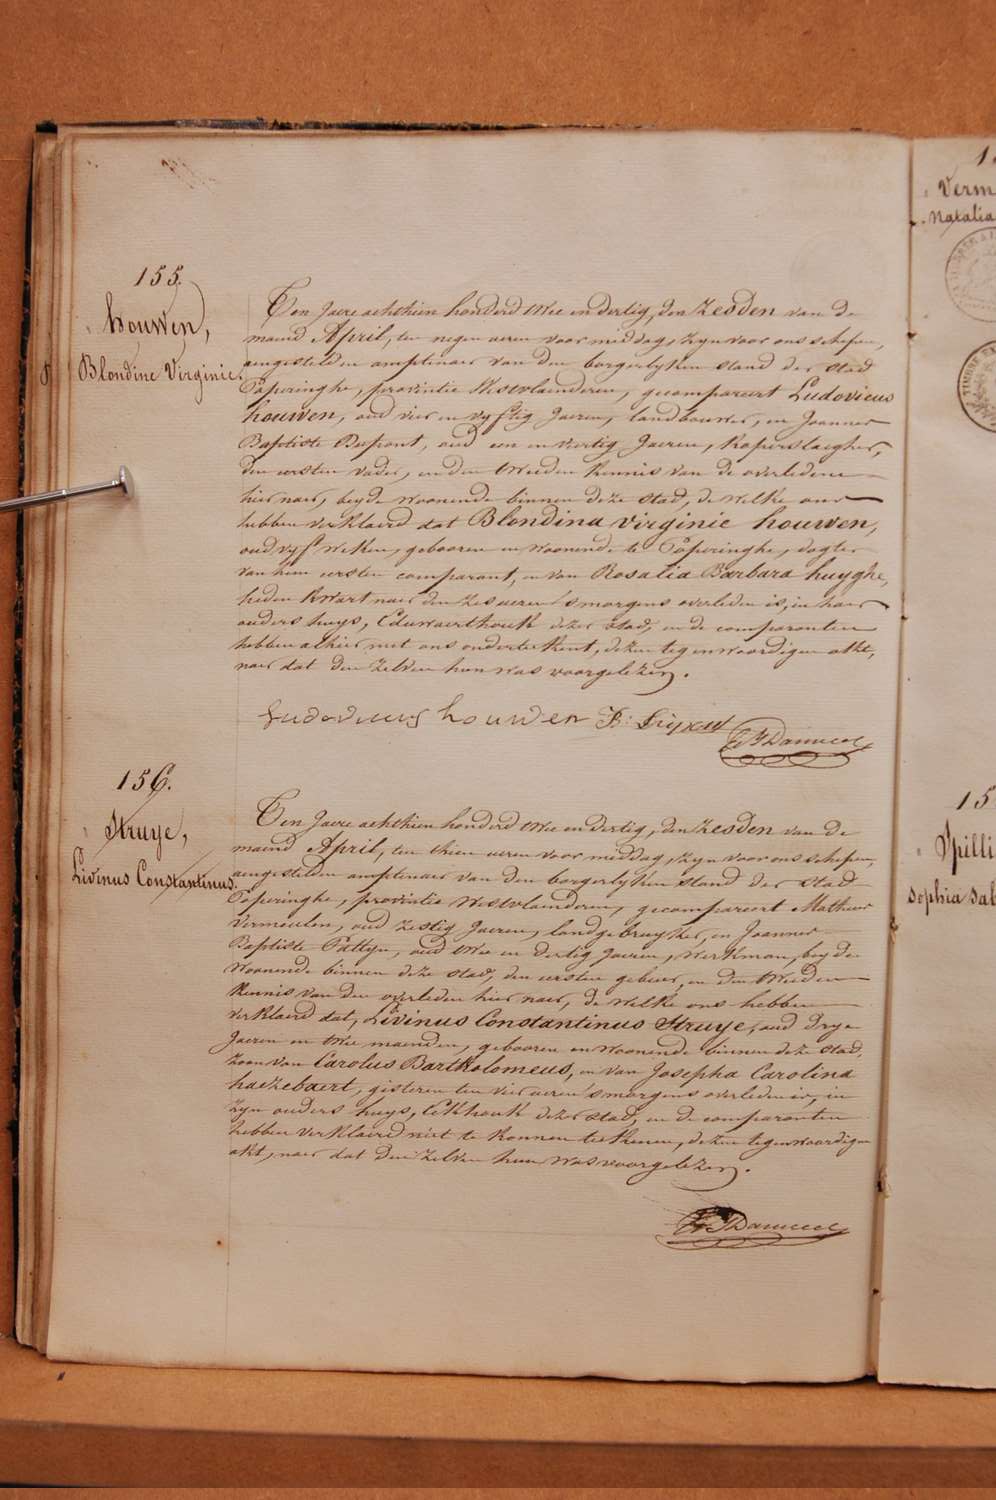 155.
houwen,
Blondine Virginie.
Ten Jaere achthien honderd twee en dertig, den Zesden van de
maend April, ten negen ueren voor middag, zyn voor ons schepen,
aengestelden amptenaer van den borgerlyken stand der stad
Poperinghe, provintie Westvlaenderen, gecompareert Ludovicus
houwen, oud vier en vyftig Jaeren, landbouwer, en Joannes
Baptiste Dupont, oud een en viertig Jaeren, Koperslaegher,
den eersten vader, en den tweeden Kennis van de overledene
hier naer, beyde woonende binnen deze stad, de welke ons
hebben verklaerd dat Blondina virginie houwen,
oud vyf weken, gebooren en woonende te Poperinghe, dogter
van hem eersten comparant, en van Rosalia Barbara huyghe,
heden Kwart naer den zes ueren s'morgens overleden is, in haer
ouders huys, Eduwaerthoek dezer stad, en de comparanten
hebben alhier met ons onderteekent, dezen tegenwoordigen akt,
naer dat den zelven hun was voorgelezen.
Ludovicus houwen
156.
Struye,
Livinus Constantinus.
Ten Jaere achthien honderd twee en dertig, den Zesden van de
maend April, ten thien ueren voor middag, zyn voor ons schepen,
aengestelden amptenaer van den borgerlyken stand der stad
Poperinghe, provintie Westvlaenderen, gecompareert Matheus
Vermeulen, oud zestig Jaeren, landgebruyker, en Joannes
Baptiste Pattyn, oud twee en dertig Jaeren, werkman, beyde
woonende binnen deze stad, den eersten gebuer, en den tweeden
Kennis van den overleden hier naer, de welke ons hebben
verklaerd dat, Livinus Constantinus Struye, oud drye
Jaeren en twee maenden, gebooren en woonende binnen deze stad,
zoon van Carolus Bartholomeus, en van Josepha Carolina
haezebaert, gisteren ten vier ueren s'morgens overleden is, in
zyn ouders huys, Ekhoek dezer stad, en de comparanten
hebben verklaerd niet te konnen teekenen, dezen tegenwoordigen
akt, naer dat den zelven hun was voorgelezen.
Verm
Natalia
15
Spilli
Sophia Sab